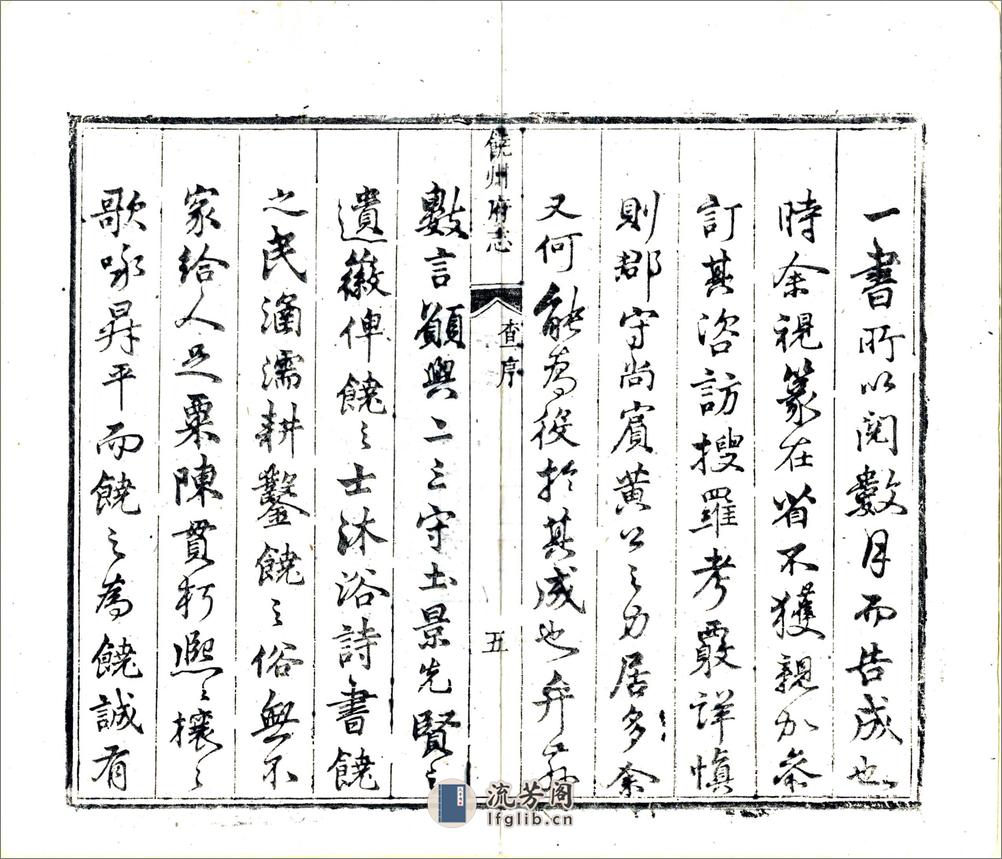 一書所以閱數月而告成也
時余視篆在省不獲親加叅
訂其咨訪搜羅考覈詳慎
則郡守尚賓黄公之力居多余
又何能為役於其成也弁
饒州府志
查序
五
數言願與二三守土景先賢之
遺徽俾饒之士沐浴詩書饒
之民涵濡耕鑿饒之俗無不
家給人足粟陳貫朽熙〻攘〻
歌咏昇平而饒之為饒誠有
流芳阁
lfglib.cn